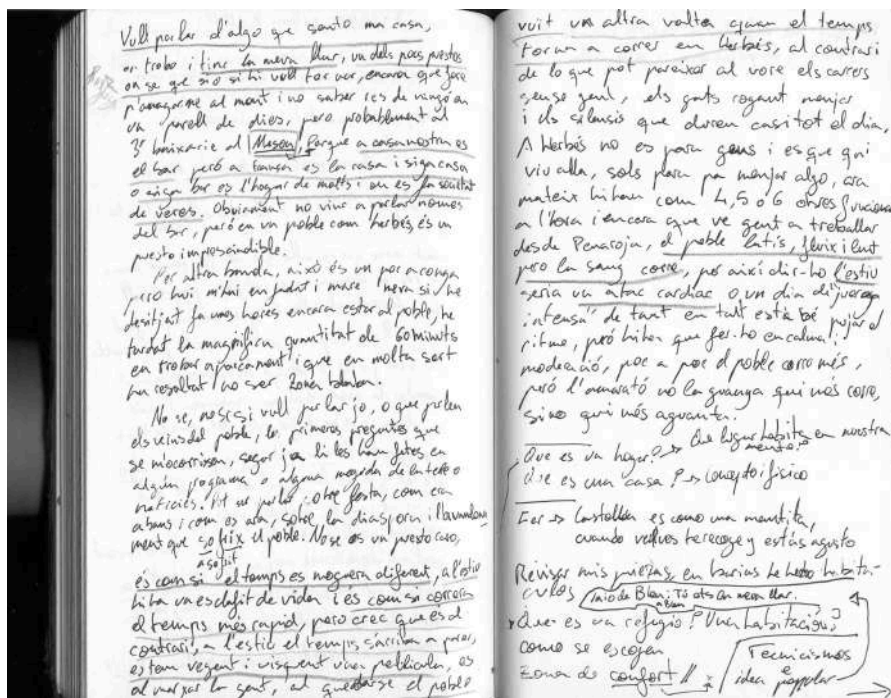 Vull parlar d'algo que sento ma casa,
on trobo i tinc la meva llar, un dels pocs puestos
on se que sio si hi vull tornar, encara que fore
p'amagarme al mont i no saber res de ningú en
un parell de dies, pero probablement al
3º baixarie al Meson, Porque a casa nostra es
el bar però a fausa es la casa i siga casa
o siga bar es l'hogar de molts i on es fa societat
de veres. Obviament no vinc a parlar nomes
del bar, però en un poble com herbés, és un
puesto imprescindible.
Per altra banda, això és un poc aconga
pero hui m'hai enfadat i mare meva si he
desitjat fa unes hores encara estar al poble, he
tardat la magnifica quantitat de 60 minuts
en trobar aparcament i que en molta sort
ha resultat no ser zona blava.
No se, no se si vull parlar jo, o que parlen
els veins del poble, les primeres preguntes que
se m'ocorrixen, segur ja li les han fetes en
algún programa o alguna mogida de la tele o
noticies. Pot ser parlar sobre festa, com era
abans i com es ara, sobre la diaspora i l'abandona
ment que sofrix el poble. No se es un puesto curo,
a sofrit
és com si el temps es moguera diferent, a l'estiu
hi ha un esclafit de vida i és com si correra
el temps més rapid, pero crec que és al
contrari, a l'estiu el temps s'arriba a parar,
estem vegent i visquent una pel·licula, es
al marxar la gent, al quedarse el poble
vuit un altra volta quan el temps
torna a correr en Herbés, al contrari
de lo que pot pareixer al vore els carrers
sense gent, els gats rogant menjar
i els silensis que duren casi tot el dia.
A herbés no es para gens i es que qui
viu alla, sols para pa menjar algo, ara
mateix hi han com 4, 5 o 6 obres funcionan
a l'hora i encara que ve gent a treballar
desde Penaroja, el poble latís, fluix i lent
pero la sang corre, per així dir-ho l'estiu
seria un atac cardiac o un dia de "juerga
intensa" de tant en tant està bé pujar el
ritme, però hi han que fer-ho en calma i
moderació, poc a poc el poble corre més,
però l'amarató no la guanya qui més corre,
sino qui més aguanta.
Que es un hogar? → Que lugar habita en nuestra
mente?
Que es una casa? → concepto físico
Fer → Castellón es como una mantita,
cuando vuelves te recoge y estás agusto
Revisar mis piezas, en varias he hecho habita-
culos Inio de Blai: Tú ets la meva llar.
a Blan
* Que es un refugio? Una habitación?
como se escojen
Zona de confort!!
Tecnicismos
e
idea popular